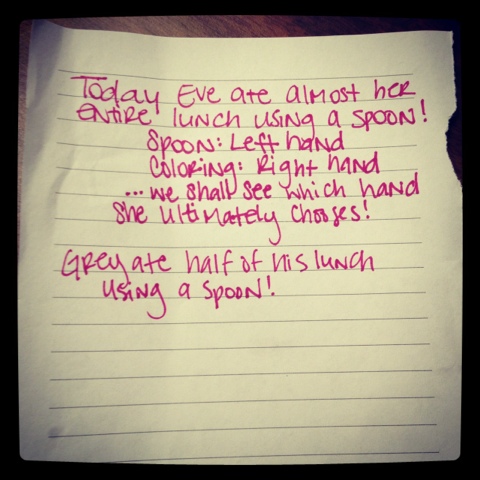 Today Eve ate almost her
entire lunch using a spoon!
Spoon: Left hand
Coloring: Right hand
... we shall see which hand
she ultimately chooses!
Grey ate half of his lunch
using a spoon!